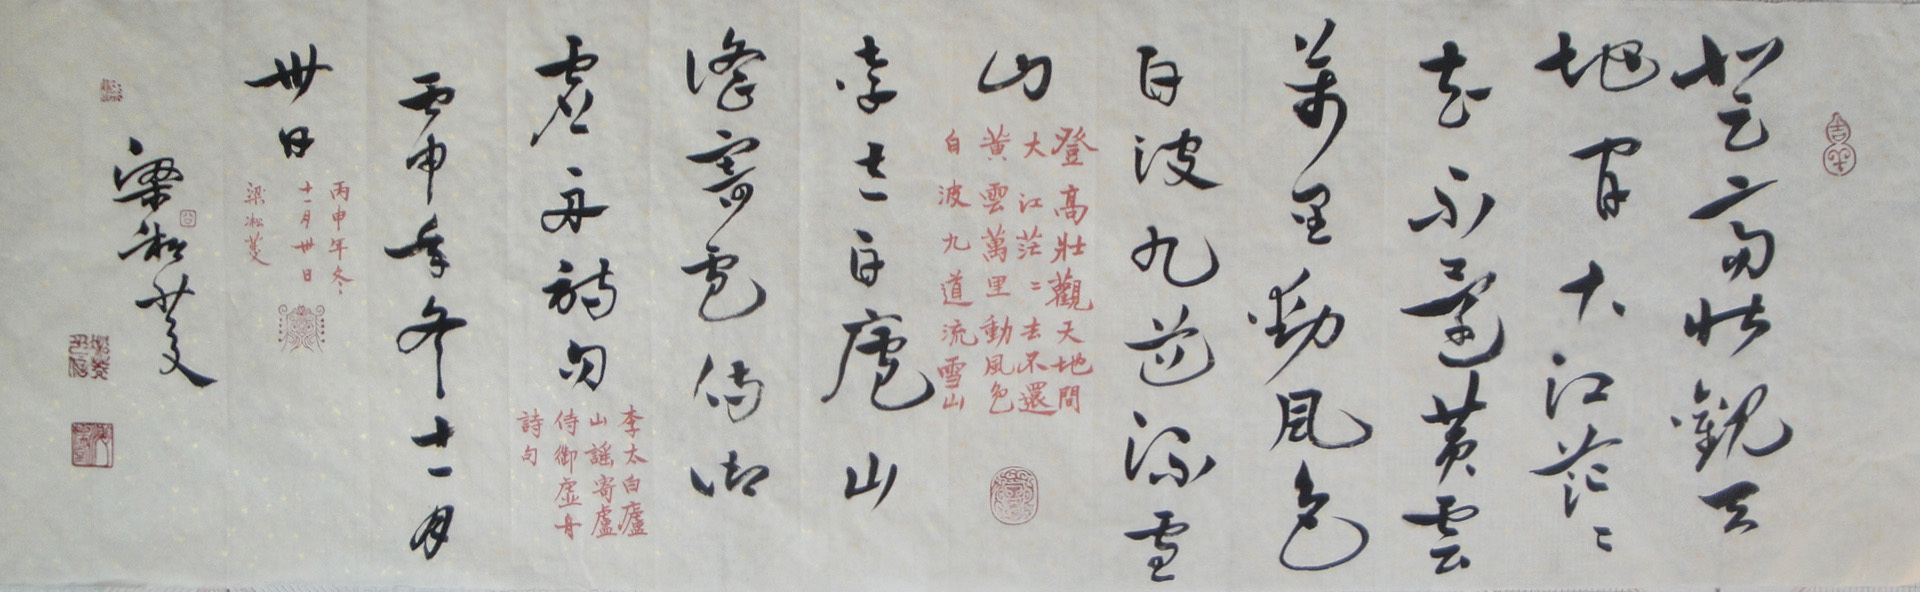 登高壯觀天
地間大江茫〻
去不還黃雲
萬里動風色
白波九道流雪
山
登高壯觀天地間
大江茫〻去不還
黃雲萬里動風色
白波九道流雪山
李太白廬山
謠寄盧侍御
虛舟詩句
李太白廬
山謠寄盧
侍御虛舟
詩句
丙申年冬十一月
卅日
丙申年冬、
十一月卅日
梁淞菱
梁淞菱